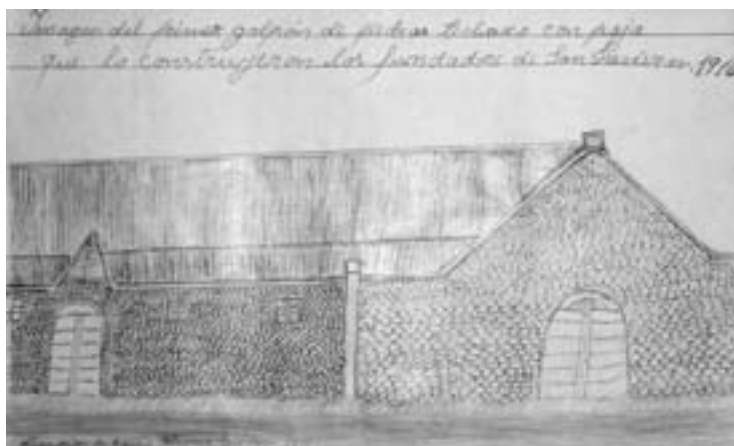 Imagen del primer galpón de piedras techado con paja
que lo construyeron los fundadores de San Javier en 191